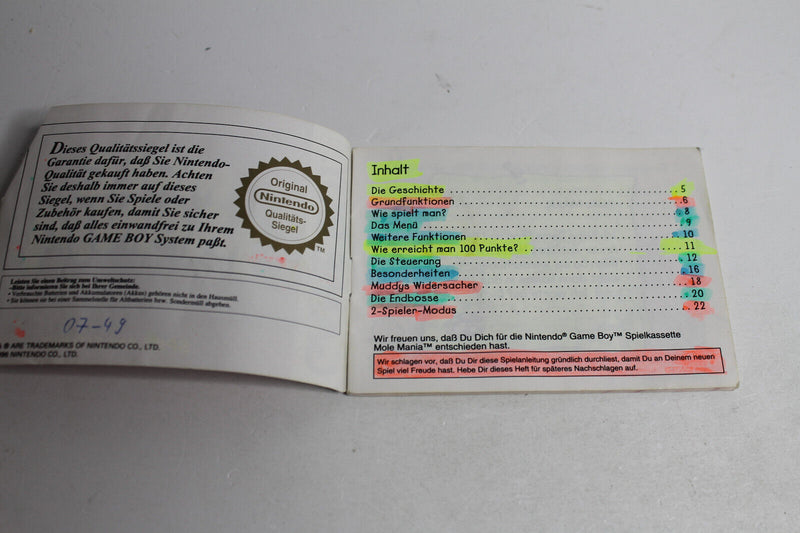 Dieses Qualitätssiegel ist die
Garantie dafür, daß Sie Nintendo-
Qualität gekauft haben. Achten
Sie deshalb immer auf dieses
Siegel, wenn Sie Spiele oder
Zubehör kaufen, damit Sie sicher
sind, daß alles einwandfrei zu Ihrem
Nintendo GAME BOY System paßt.
Original
Nintendo
Qualitäts-
Siegel
TM
Leisten Sie einen Beitrag zum Umweltschutz:
-Bitte informieren Sie sich bei Ihrer Gemeinde.
• Verbrauchte Batterien und Akkumulatoren (Akkus) gehören nicht in den Hausmüll.
• Sie können sie bei einer Sammelstelle für Altbatterien bzw. Sondermüll abgeben.
07-49
& ® ARE TRADEMARKS OF NINTENDO CO., LTD.
NINTENDO CO., LTD.
Inhalt
Die Geschichte 5
Grundfunktionen 6
Wie spielt man? 8
Das Menü 9
Weitere Funktionen 10
Wie erreicht man 100 Punkte? 11
Die Steuerung 12
Besonderheiten 16
Muddys Widersacher 18
Die Endbosse 20
2-Spieler-Modus 22
Wir freuen uns, daß Du Dich für die Nintendo® Game Boy™ Spielkassette
Mole Mania™ entschieden hast.
Wir schlagen vor, daß Du Dir diese Spielanleitung gründlich durchliest, damit Du an Deinem neuen
Spiel viel Freude hast. Hebe Dir dieses Heft für späteres Nachschlagen auf.